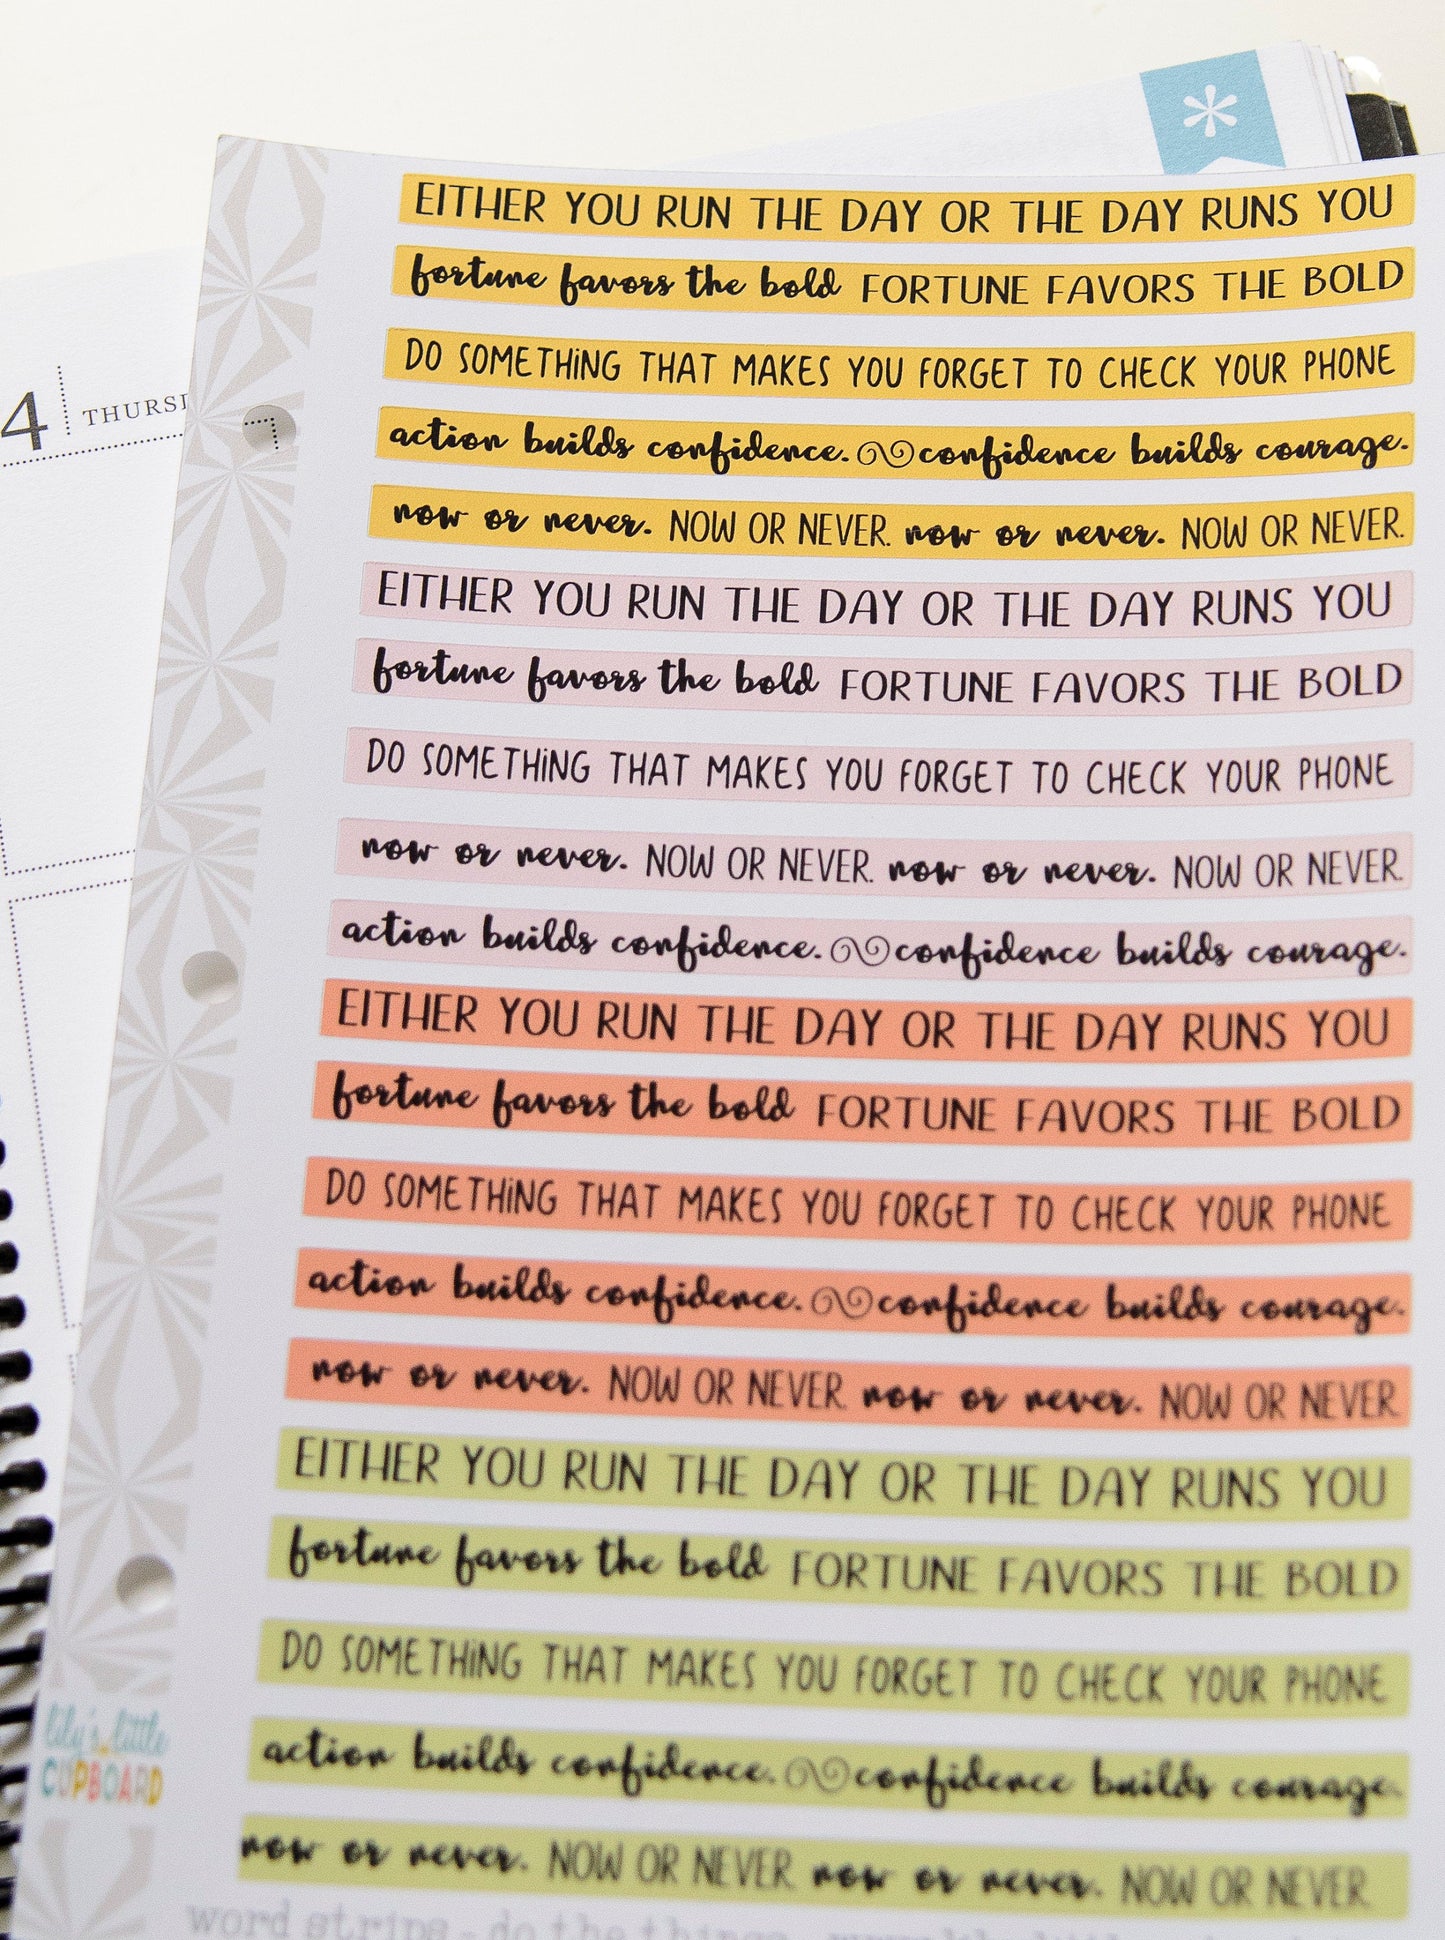 *
4 THURS
EITHER YOU RUN THE DAY OR THE DAY RUNS YOU
fortune favors the bold FORTUNE FAVORS THE BOLD
DO SOMETHING THAT MAKES YOU FORGET TO CHECK YOUR PHONE
action builds confidence. confidence builds courage.
now or never. NOW OR NEVER. now or never. NOW OR NEVER.
EITHER YOU RUN THE DAY OR THE DAY RUNS YOU
fortune favors the bold FORTUNE FAVORS THE BOLD
DO SOMETHING THAT MAKES YOU FORGET TO CHECK YOUR PHONE
now or never. NOW OR NEVER. now or never. NOW OR NEVER.
action builds confidence. confidence builds courage.
EITHER YOU RUN THE DAY OR THE DAY RUNS YOU
fortune favors the bold FORTUNE FAVORS THE BOLD
DO SOMETHING THAT MAKES YOU FORGET TO CHECK YOUR PHONE
action builds confidence. confidence builds courage.
now or never. NOW OR NEVER. now or never. NOW OR NEVER.
EITHER YOU RUN THE DAY OR THE DAY RUNS YOU
fortune favors the bold FORTUNE FAVORS THE BOLD
DO SOMETHING THAT MAKES YOU FORGET TO CHECK YOUR PHONE
action builds confidence. confidence builds courage.
now or never. NOW OR NEVER. now or never. NOW OR NEVER.
lily's little
CUPBOARD
word strips - do the things